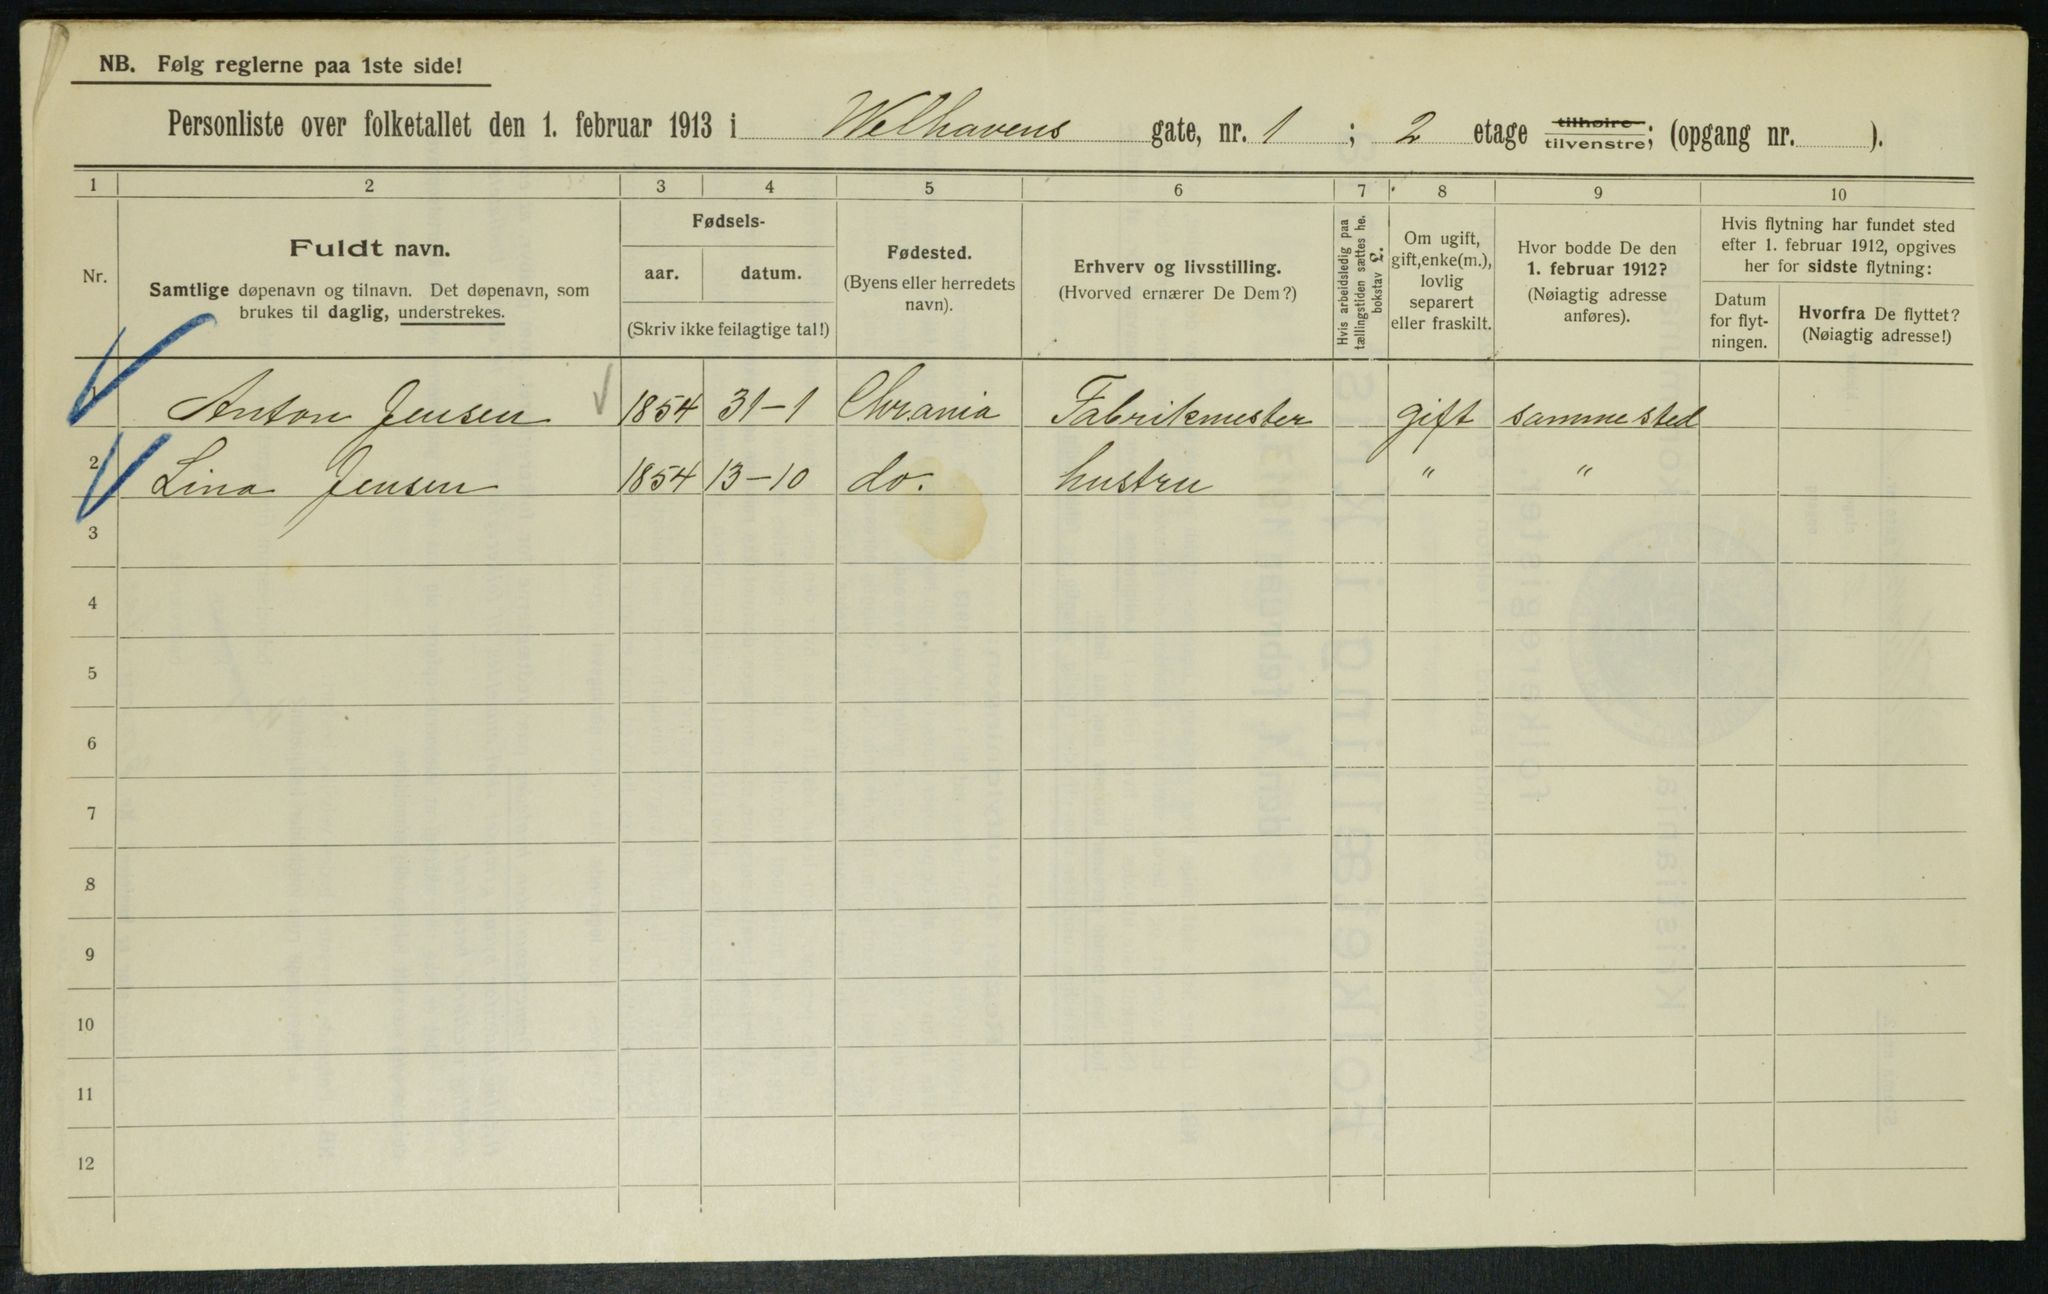 NB. Følg reglerne paa 1ste side!
Personliste over folketallet den 1. februar 1913 i Welhavens gate, nr. 1 ; 2 etage tilhøire tilvenstre; (opgang nr. ).
1 2 3 4 5 6 7 8 9 10
Nr.
Fuldt navn.
Samtlige døpenavn og tilnavn. Det døpenavn, som
brukes til daglig, understrekes.
Fødsels-
aar. datum.
(Skriv ikke feilagtige tal!)
Fødested.
(Byens eller herredets
navn).
Erhverv og livsstilling.
(Hvorved ernærer De Dem?)
Hvis arbeidsledig paa
tællingstiden sættes he.
bokstav L.
Om ugift,
gift, enke(m.),
lovlig
separert
eller fraskilt.
Hvor bodde De den
1. februar 1912?
(Nøiagtig adresse
anføres).
Hvis flytning har fundet sted
efter 1. februar 1912, opgives
her for sidste flytning:
Datum
for flyt-
ningen.
Hvorfra De flyttet?
(Nøiagtig adresse!)
1 Anton Jensen 1854 31-1 Chrania Fabrikmester gift sammested
2 Lina Jensen 1854 13-10 do. hustru " "
3
4
5
6
7
8
9
10
11
12